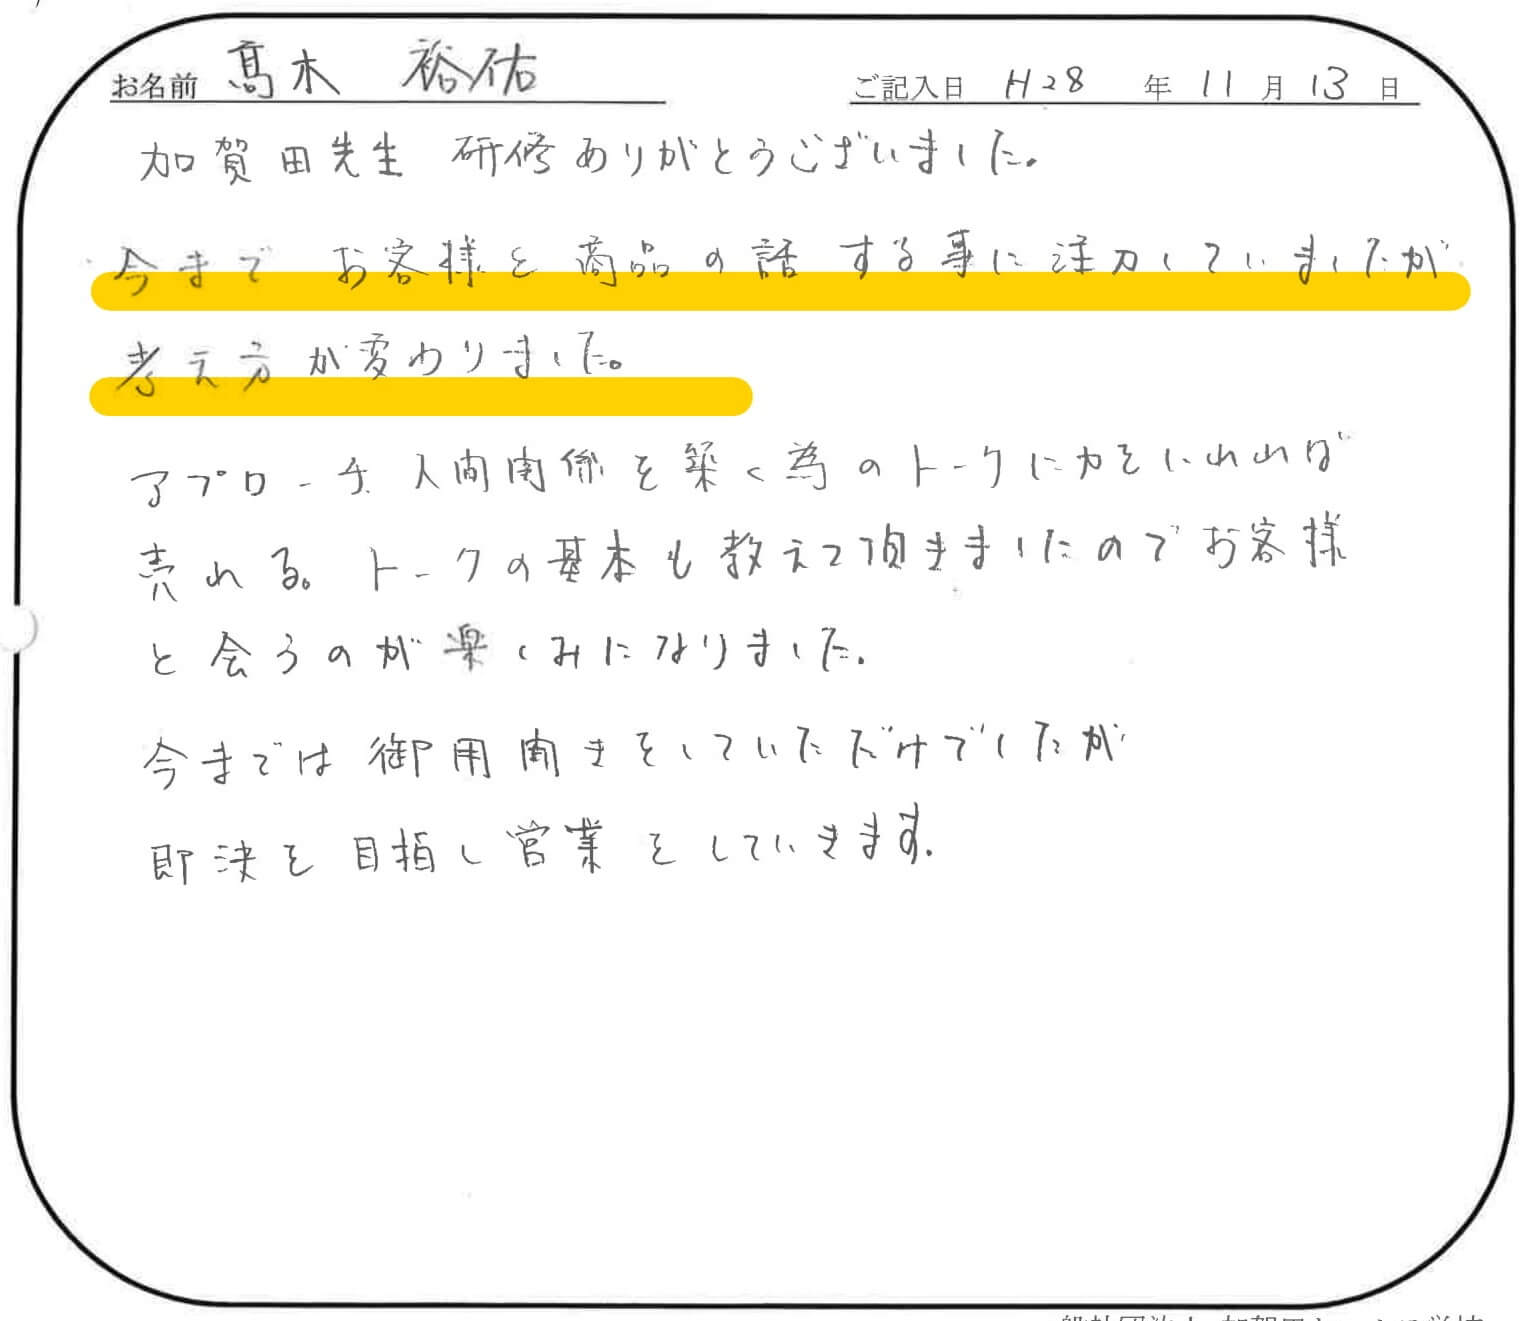 お名前 髙木 裕佑 ご記入日 H28 年 11 月 13 日
加賀田先生 研修ありがとうございました。
今まで お客様と商品の話 する事に注力していましたが
考え方が変わりました。
アプローチ 人間関係を築く為のトークに力をいれれば
売れる。トークの基本も教えて頂きましたのでお客様
と会うのが楽しみになりました。
今までは御用聞きをしていただけでしたが
即決を目指し営業をしていきます。